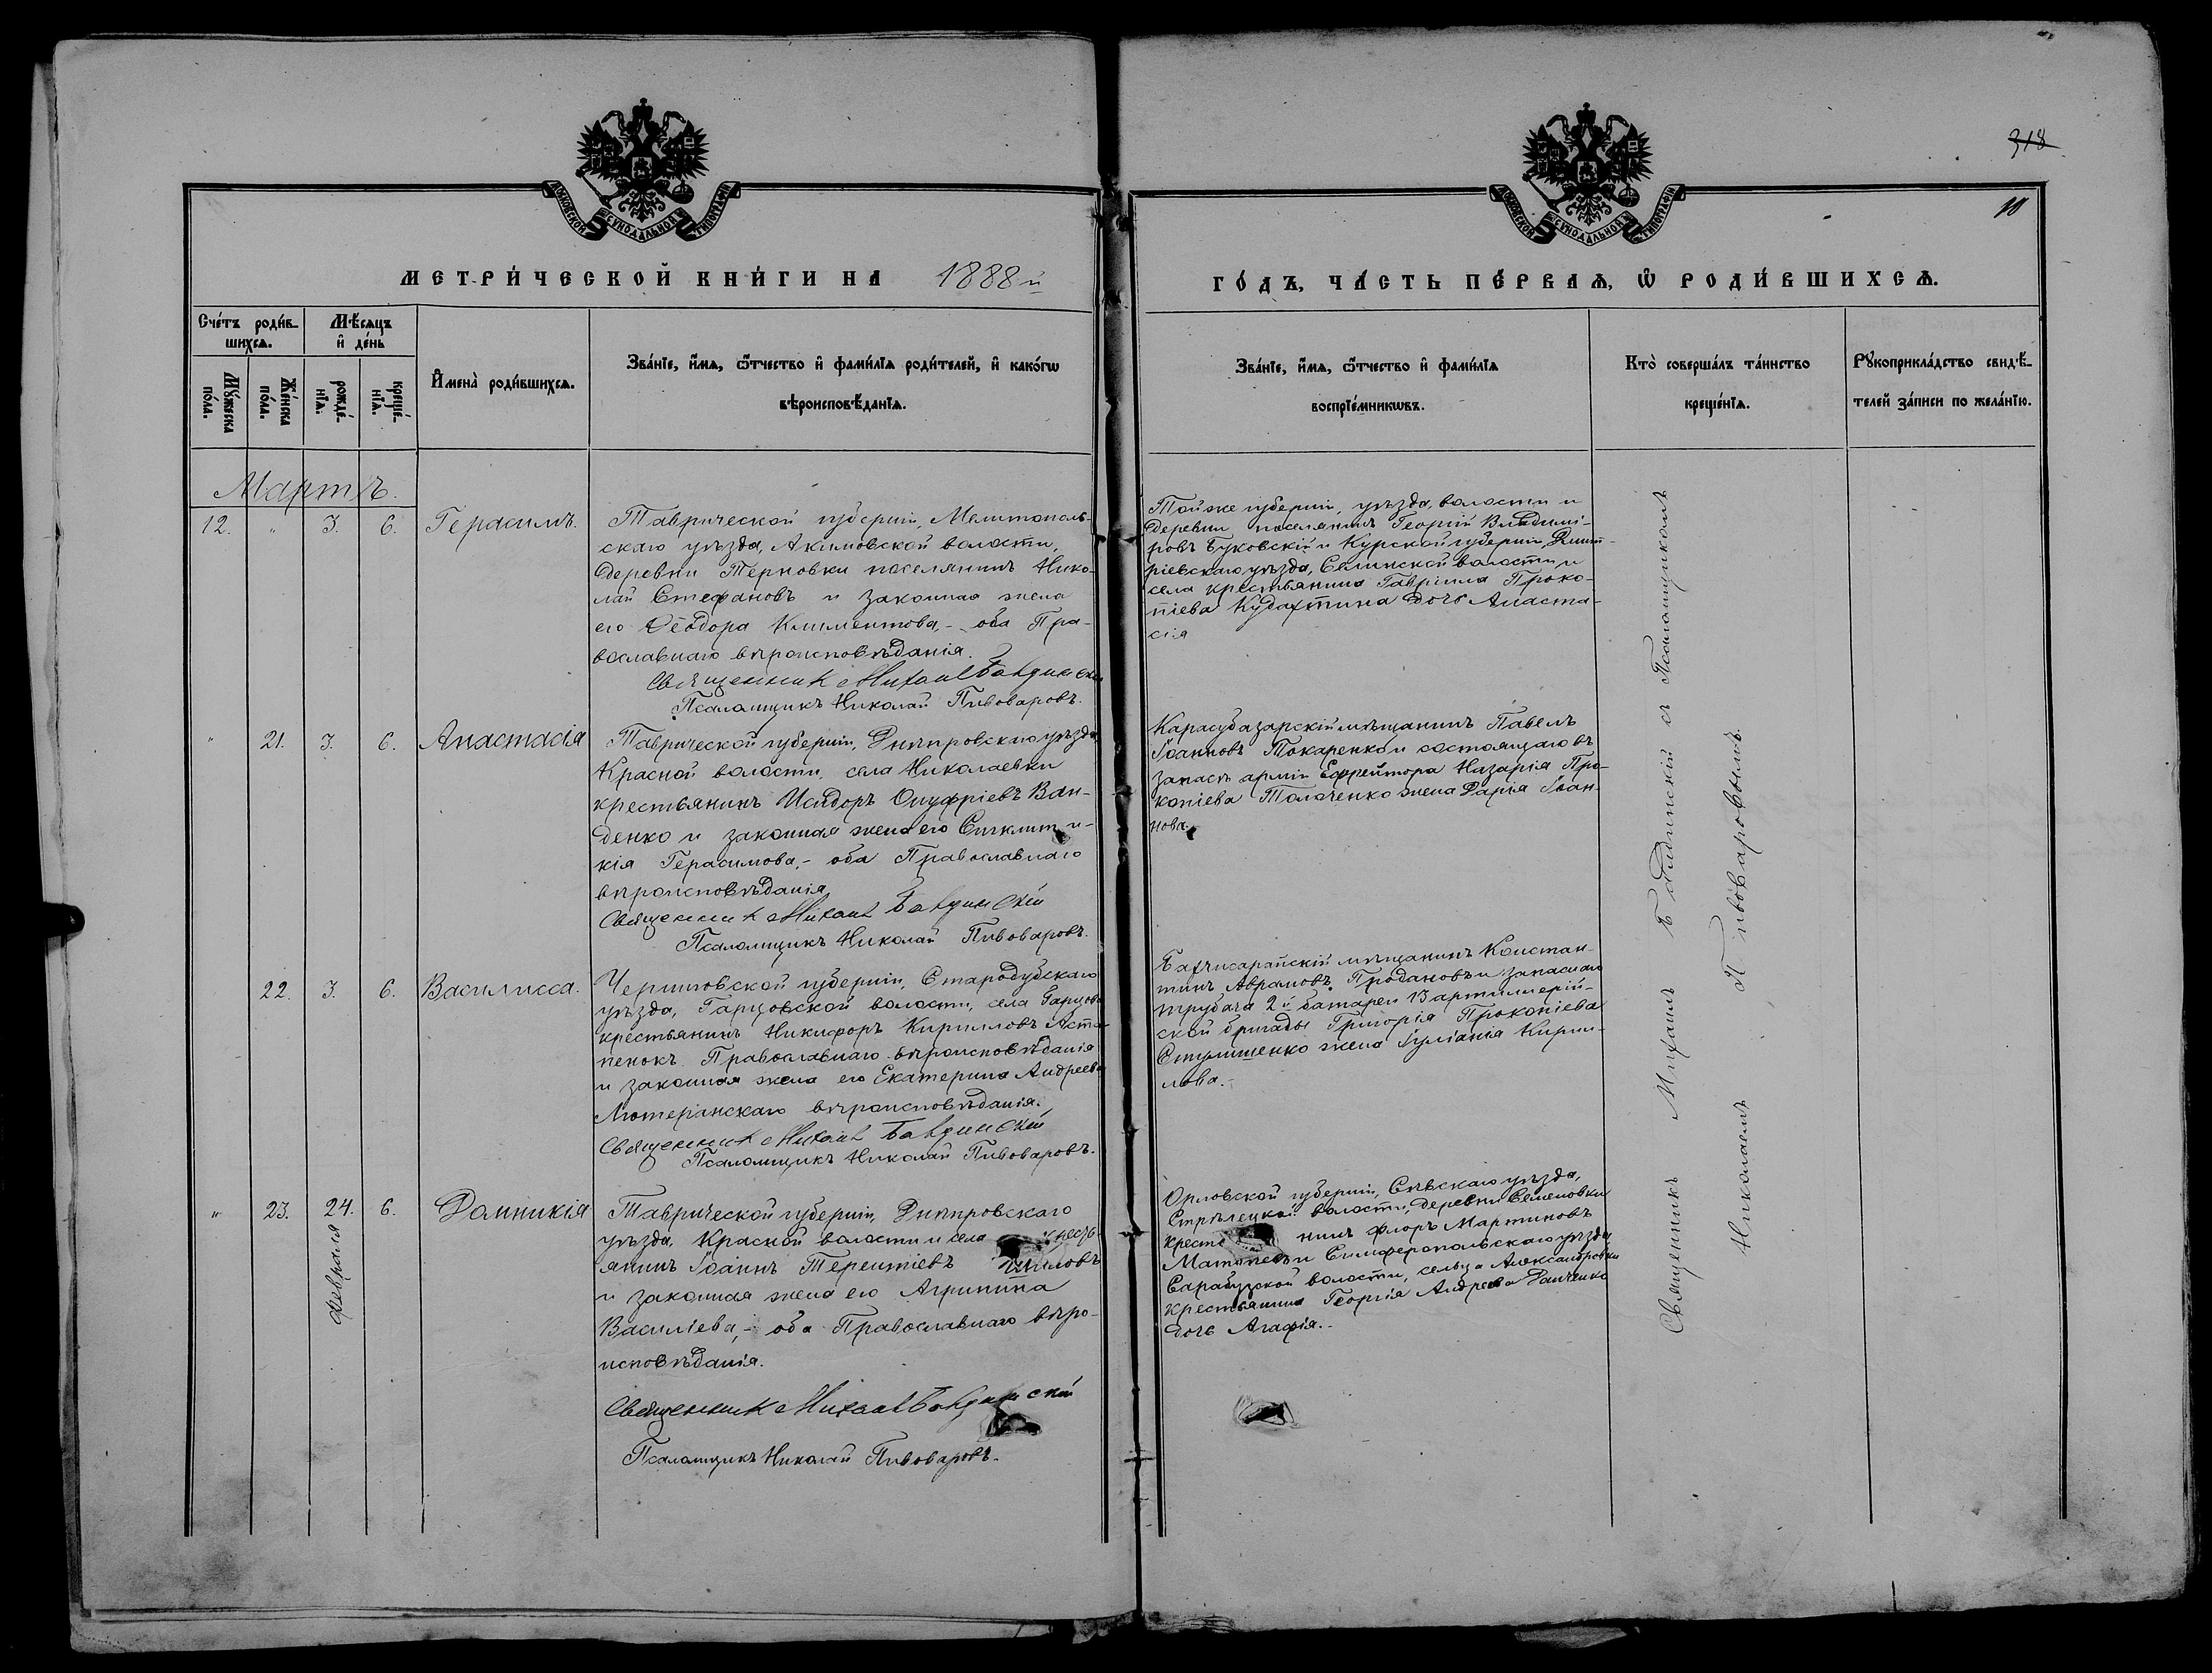 318
10
МОСКОВСКОЙ СѴНОДАЛЬНОЙ ТИПОГРАФІИ
МОСКОВСКОЙ СѴНОДАЛЬНОЙ ТИПОГРАФІИ
МЕТРИ́ЧЕСКОЙ КНИ́ГИ НА 1888й
ГО́ДЪ, ЧА́СТЬ ПЕ́РВАѦ, Ѡ҆ РОДИ́ВШИХСѦ.
Сче́тъ роди́в-
шихсѧ.
Мꙋ́жеска по́ла.
Же́нска по́ла.
Мѣ́сѧцъ
и҆ де́нь
рожде́-
нїѧ.
креще́-
нїѧ.
И҆мена̀ роди́вшихсѧ.
Зва́нїе, и҆́мѧ, ѻ҆́тчество и҆ фами́лїѧ роди́телей, и҆ како́гѡ
вѣроисповѣ́данїѧ.
Зва́нїе, и҆́мѧ, ѻ҆́тчество и҆ фами́лїѧ
воспрїе́мникѡвъ.
Кто̀ соверша́лъ та́инство
креще́нїѧ.
Рꙋкоприкла́дство свидѣ́-
телей за́писи по жела́нїю.
Мартъ.
12. " 3. 6. Герасимъ.
Таврической губерніи, Мелитополь-
скаго уѣзда, Акимовской волости,
деревни Терновки поселянинъ Нико-
лай Стефановъ и законная жена
его Ѳеодора Климентова,- оба Пра-
вославнаго вѣроисповѣданія.
Священникъ Михаилъ
Псаломщикъ Николай Пивоваровъ.
Тойже губерніи, уѣзда, волости и
деревни поселянинъ Георгій Владимі-
ровъ Буковскій и Курской губерніи, Дмит-
ріевскаго уѣзда, Селинской волости и
села крестьянина Гавріила Проко-
піева Кудахтина дочь Анаста-
сія
" 21. 3. 6. Анастасія
Таврической губерніи, Днѣпровскаго уѣзда,
Красной волости, села Николаевки
крестьянинъ Исидоръ Онуфріевъ Ван-
денко и законная жена его Синклити-
кія Герасимова,- оба Православнаго
вѣроисповѣданія
Священникъ Михаилъ
Псаломщикъ Николай Пивоваровъ.
Карасубазарскій мѣщанинъ Павелъ
Іоанновъ Токаренко и состоящаго въ
запасѣ арміи Ефрейтора Назарія Про-
копіева Толоченко жена Дарія Іоан-
нова.
22. 3. 6. Василисса.
Черниговской губерніи, Стародубскаго
уѣзда, Гарцовской волости, села Гарцова
крестьянинъ Никифоръ Кирилловъ Аста-
пенокъ Православнаго вѣроисповѣданія
и законная жена его Екатерина Андреева
Лютеранскаго вѣроисповѣданія.
Священникъ Михаилъ
Псаломщикъ Николай Пивоваровъ.
Бахчисарайскій мѣщанинъ Констан-
тинъ Аврамовъ Продановъ и запаснаго
трубача 2й батареи 13 артиллерій-
ской бригады Григорія Прокопіева
жена Іуліанія Кирил-
лова.-
" 23. 24. Февраля 6. Домникія
Таврической губерніи, Днѣпровскаго
уѣзда, Красной волости и села кресть-
янинъ Іоаннъ Терентіевъ
и законная жена его Агрипина
Василіева,- оба Православнаго вѣро-
исповѣданія.
Священникъ Михаилъ
Псаломщикъ Николай Пивоваровъ.
Орловской губерніи, Сѣвскаго уѣзда,
Стрѣлецкой волости, деревни Семеновки
крестьянинъ Флоръ Мартиновъ
и Симферопольскаго уѣзда
Сарабузской волости, сельца Александровки
крестьянина Георгія Андреева Данченко
дочь Агафія.-
Священникъ Михаилъ съ Псаломщикомъ
Николаемъ Пивоваровымъ.